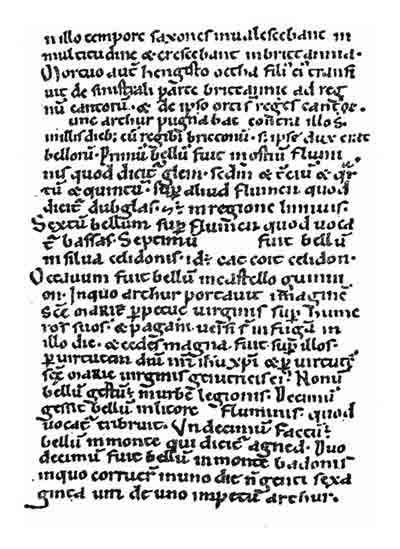 n illo tempore saxones inualescebant in
multitudine & crescebant inbrittannia.
Mortuo aut̄ hengisto octha fili᷒ ei᷒ transi
uit de sinistrali parte brittannie ad reg
nū cantorū. & de ipso orti s̄ reges cantoꝝ.
unc arthur pugnabat contra illos
inillis dieb; cū regib; brittonū. s; ipse dux erat
bellorū. Primū bellū fuit inostiū flumi
nis quod dicit̄ glein. secdm̄ & t̄ciū & qr̄
tū & quintū. sup̄ aliud flumen quod
dicit̄ dubglas. ÷ inregione linnuis.
Sextū bellum sup̄ flumen quod uoca
t̄ bassas. Septimū fuit bellū
insilua celidonis. id ÷ cat coit celidon.
Octauum fuit bellū incastello guinni
on. Inquo arthur portauit imaginē
sc̄e marie p̄petue uirginis sup̄ hume
ros suos. & pagani uersi s̄ in fugā in
illo die. & cedes magna fuit sup̄ illos.
p̄ uirtutem dn̄i nr̄i ih̄u xp̄i & p̄ uirtutē
sc̄e marie uirginis genitricis ei᷒. Nonū
bellū gestū ÷ inurbe legionis. Decimū
gessit bellū inlitore fluminis quod
uocat̄ tribruit. Undecimū factū ÷
bellū inmonte qui dicit̄ agned. Duo
decimū fuit bellū inmonte badonis
inquo corruer̄ inuno die n̄genti sexa
ginta uiri de uno impetu arthur.